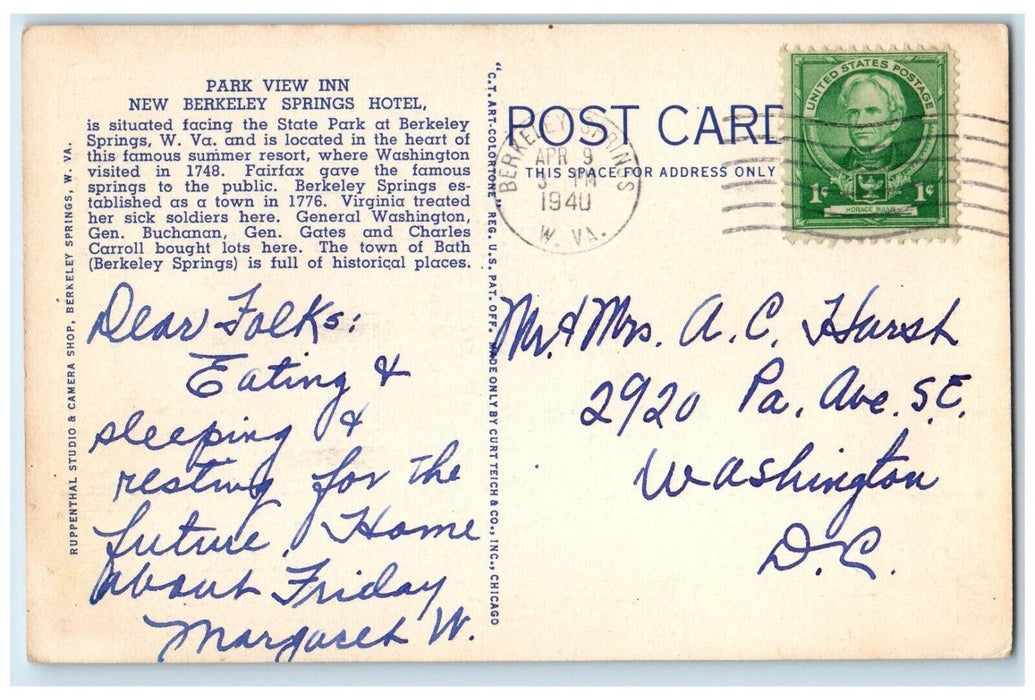 PARK VIEW INN
NEW BERKELEY SPRINGS HOTEL,
is situated facing the State Park at Berkeley
Springs, W. Va. and is located in the heart of
this famous summer resort, where Washington
visited in 1748. Fairfax gave the famous
springs to the public. Berkeley Springs es-
tablished as a town in 1776. Virginia treated
her sick soldiers here. General Washington,
Gen. Buchanan, Gen. Gates and Charles
Carroll bought lots here. The town of Bath
(Berkeley Springs) is full of historical places.
RUPPENTHAL STUDIO & CAMERA SHOP, BERKELEY SPRINGS, W. VA.
Dear Folks:
Eating &
sleeping &
resting for the
future. Home
about Friday
Margaret W.
"C.T. ART-COLORTONE" REG. U.S. PAT. OFF. MADE ONLY BY CURT TEICH & CO., INC., CHICAGO
POST CARD
THIS SPACE FOR ADDRESS ONLY
BERKELEY SPRINGS
APR 9
PM
1940
W. VA.
UNITED STATES POSTAGE
1¢ 1¢
HORACE MANN
Mr. & Mrs. A. C. Harsh
2920 Pa. Ave. S.E.
Washington
D.C.